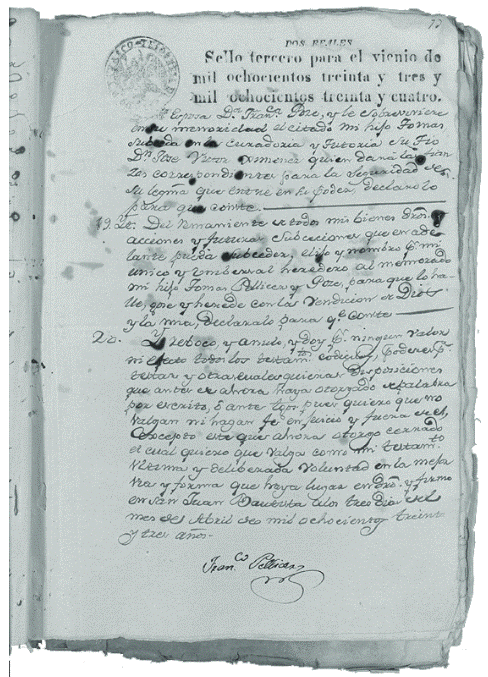 77
DOS REALES
Sello tercero para el vienio de
mil ochocientos treinta y tres y
mil ochocientos treinta y cuatro.
Esposa Dª. Franca. Pozo, y le sobreviniere
en su memoridad el citado mi hijo Tomas
en la Curaduria y Tutoria su Tio
Dn. Jose Victor Ximenez quien dara las fian
zas correspondientes para la seguridad de
su legma que entre en su poder, declarolo
para que conste.
19. Yt. Del remaniente de todos mis bienes dros.
acciones y futuras subceciones que en ade
lante pueda subceder, elijo y nombro pr. mi
unico y unibersal heredero al memorado
mi hijo Tomas Pellicer y Pozo, para que lo ha
ye, goze y herede con la Vendicion de Dios
y la mia, Declaralo para qe. Conste
20. Yt. Reboco y anulo, y doy pr. ningun valor
ni efecto todos los testamtos. codicilos, Poderes pa.
testar y otras cuales quieras Disposiciones
que antes de ahora haya otorgado de palabra
por escrito, ó ante tgos pues quiero que no
valgan ni hagan fé en juicio y fuera de el,
Concepto este que ahora otorgo cerrado
el cual quiero que valga como mi testamto.
Ultima y deliberada Voluntad en la mejor
via y forma que haya lugar en dro. y firmo
en San Juan Bautista a los tres dias del
mes de Abril de mil ochocientos treinta
y tres años.
Franco. Pellicer